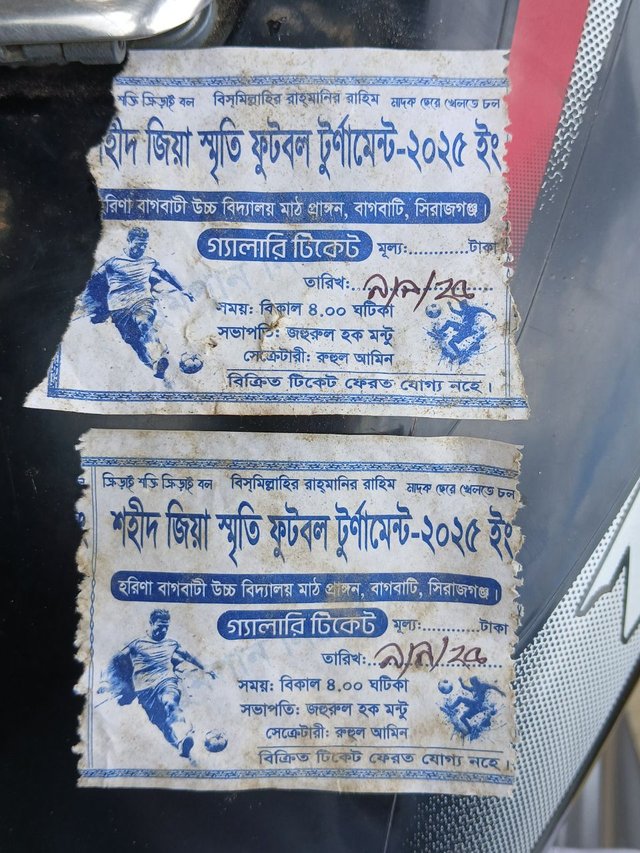 শক্তি ক্রিড়াই বল বিস্‌মিল্লাহির রাহ্‌মানির রাহিম মাদক ছেরে খেলতে চল
হীদ জিয়া স্মৃতি ফুটবল টুর্ণামেন্ট-২০২৫ ইং
হরিণা বাগবাটী উচ্চ বিদ্যালয় মাঠ প্রাঙ্গন, বাগবাটি, সিরাজগঞ্জ।
গ্যালারি টিকেট মূল্য:............টাকা
তারিখ:৯/৯/২৫
সময়: বিকাল ৪.০০ ঘটিকা
সভাপতি: জহুরুল হক মন্টু
সেক্রেটারী: রুহুল আমিন
বিক্রিত টিকেট ফেরত যোগ্য নহে।
ক্রিড়াই শক্তি ক্রিড়াই বল বিস্‌মিল্লাহির রাহ্‌মানির রাহিম মাদক ছেরে খেলতে চল
শহীদ জিয়া স্মৃতি ফুটবল টুর্ণামেন্ট-২০২৫ ইং
হরিণা বাগবাটী উচ্চ বিদ্যালয় মাঠ প্রাঙ্গন, বাগবাটি, সিরাজগঞ্জ।
গ্যালারি টিকেট মূল্য:............টাকা
তারিখ:৯/৯/২৫
সময়: বিকাল ৪.০০ ঘটিকা
সভাপতি: জহুরুল হক মন্টু
সেক্রেটারী: রুহুল আমিন
বিক্রিত টিকেট ফেরত যোগ্য নহে।